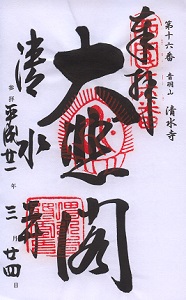 奉拝
第十六番
音羽山
清水寺
大悲閣
清水寺
参拝
平成廿一年
三月廿四日